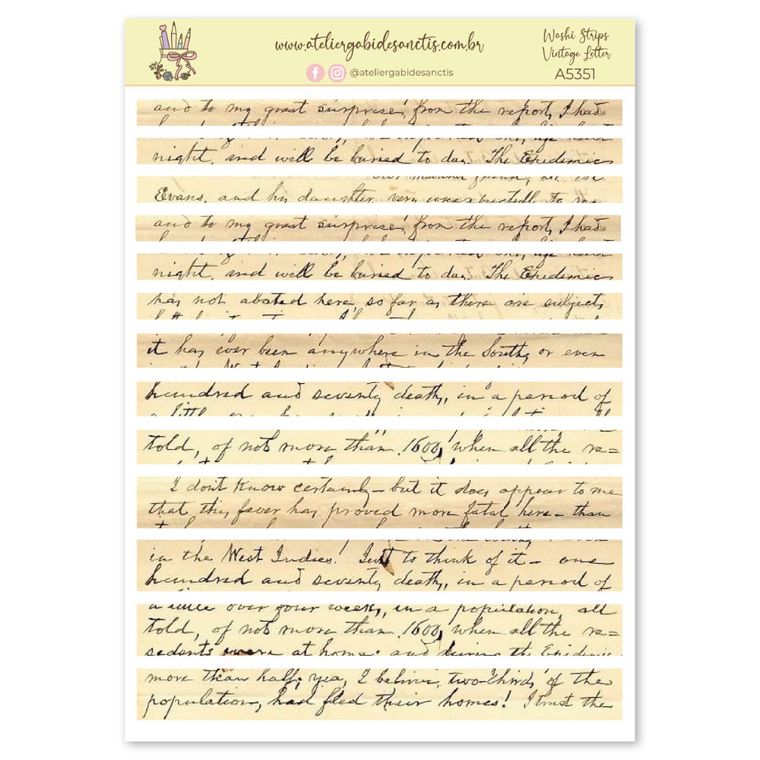 www.ateliergabidesanctis.com.br
@ateliergabidesanctis
Washi Strips
Vintage Letter
A5351
and to my great surprise, from the report, I had
night, and will be buried to day. The Epidemic
Evans, and his daughter very unexpectedly to me
and to my great surprise, from the report, I had
night, and will be buried to day. The Epidemic
has not abated here, so far as there are subjects,
it has ever been anywhere in the South, or even
hundred and seventy deaths, in a period of
told, of not more than 1600, when all the re=
I don't know certainly – but it does appear to me
that this fever has proved more fatal here – than
in the West Indies! Just to think of it – one
hundred and seventy deaths, in a period of
a little over four weeks, in a population, all
told, of not more than 1600, when all the re=
sedents were at home: and during the Epidemic
more than half, yea, I believe, two-thirds of the
population, had fled their homes! I trust the